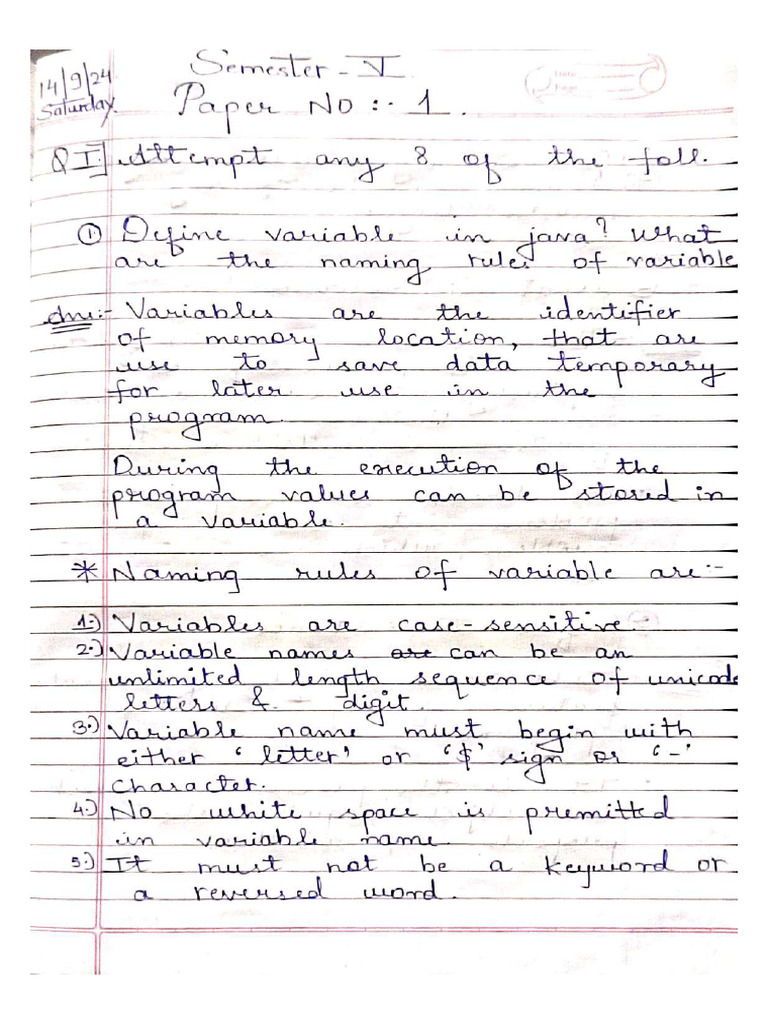 Semester - V
14/9/24
Saturday.
Paper No :- 1.
Q I] Attempt any 8 of the foll.
① Define variable in java? What
are the naming rules of variable
Ans:- Variables are the identifier
of memory location, that are
use to save data temporary
for later use in the
program.
During the execution of the
program values can be stored in
a variable.
* Naming rules of variable are:-
1.) Variables are case-sensitive.
2.) Variable names are can be an
unlimited length sequence of unicode
letters & - digit.
3.) Variable name must begin with
either 'letter' or '$' sign or '-'
character.
4.) No white space is premitted
in variable name.
5.) It must not be a keyword or
a reversed word.